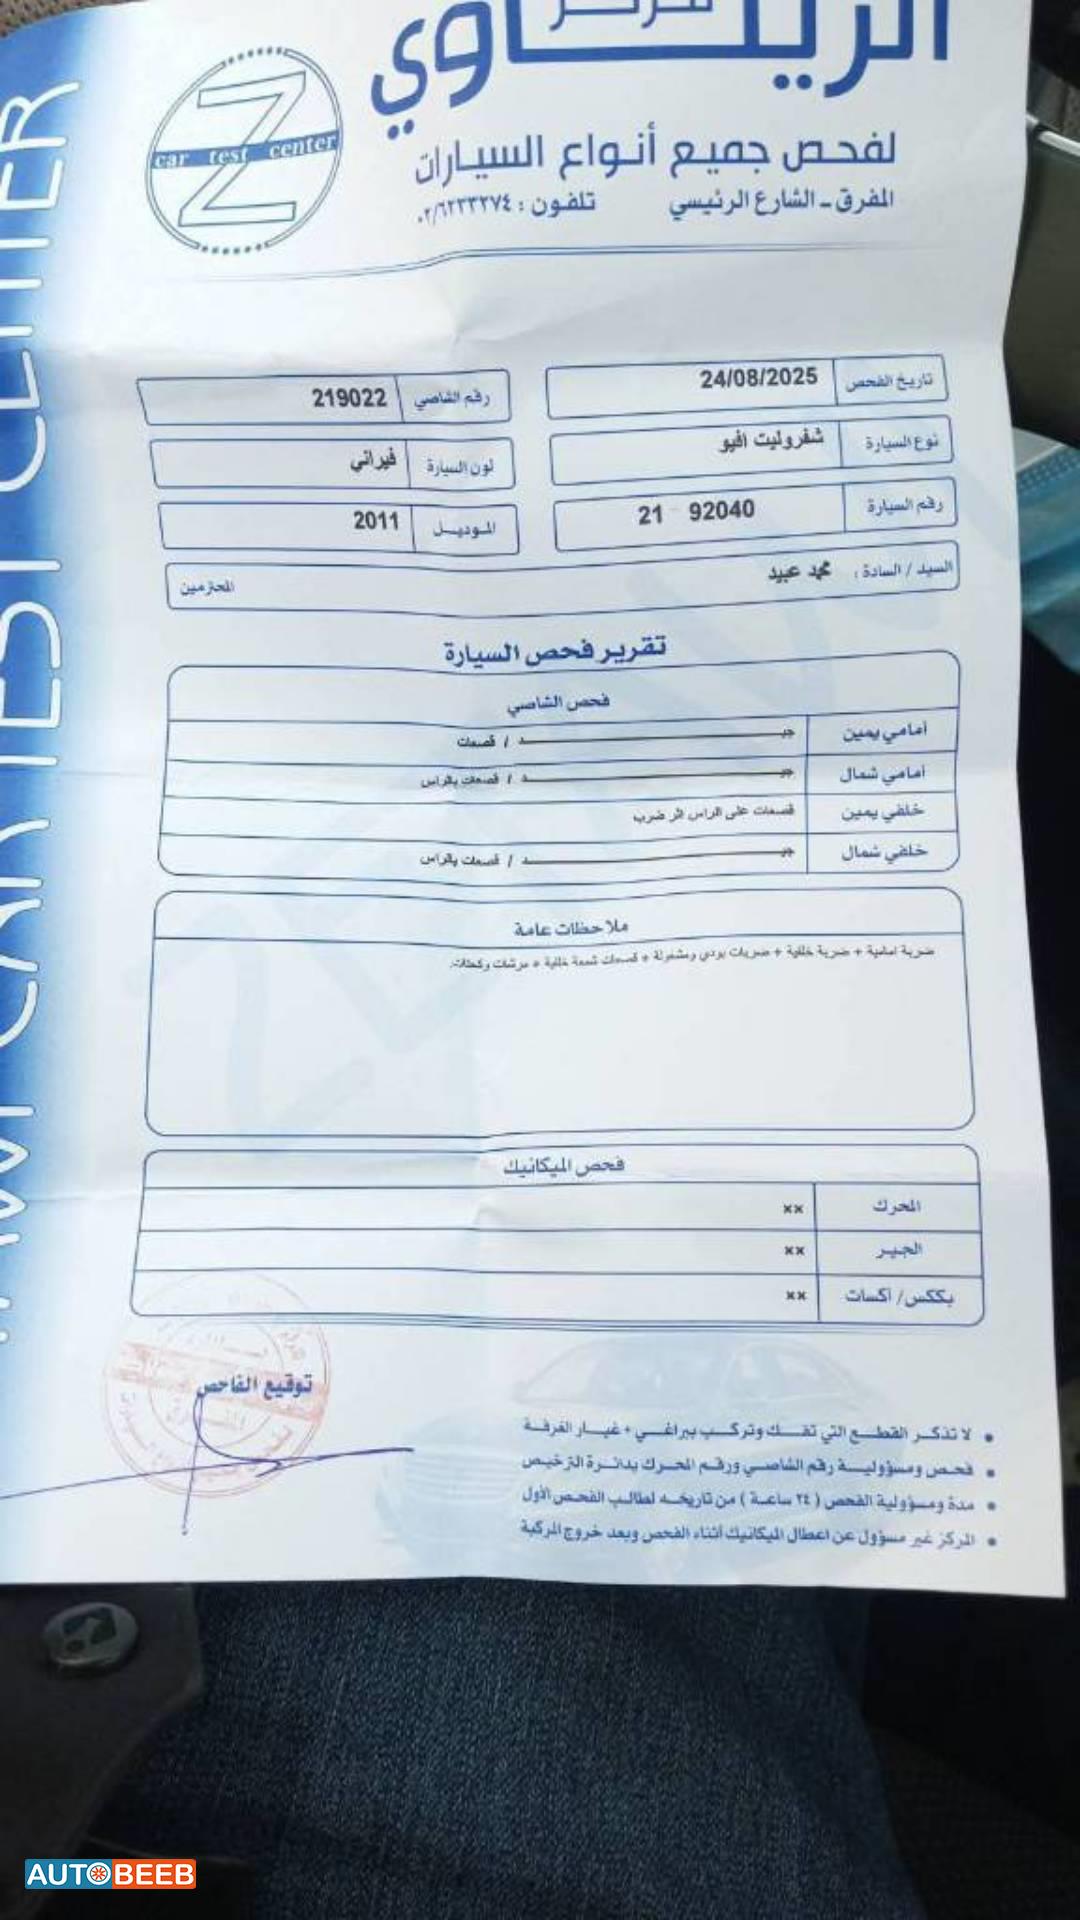 مركز
الزيناوي
car test center
لفحص جميع أنواع السيارات
المفرق - الشارع الرئيسي تلفون : ٠٢/٦٢٣٣٢٧٤
CAR TEST CENTER
تاريخ الفحص 24/08/2025 رقم الشاصي 219022
نوع السيارة شفروليت افيو لون السيارة فيراني
رقم السيارة 92040 21 الموديل 2011
السيد / السادة : محمد عبيد المحترمين
تقرير فحص السيارة
فحص الشاصي
أمامي يمين جـــــد / قصعات
أمامي شمال جـــــد / قصعات بالراس
خلفي يمين قصعات على الراس اثر ضرب
خلفي شمال جـــــد / قصعات بالراس
ملاحظات عامة
ضربة امامية + ضربة خلفية + ضربات بودي ومشغولة + قصعات شمعة خلفية + مرشات وكحتات.
فحص الميكانيك
المحرك xx
الجير xx
بككس/ أكسات xx
توقيع الفاحص
• لا تذكر القطع التي تفك وتركب ببراغي + غيار الغرفة
• فحص ومسؤولية رقم الشاصي ورقم المحرك بدائرة الترخيص
• مدة ومسؤولية الفحص ( ٢٤ ساعة ) من تاريخه لطالب الفحص الأول
• المركز غير مسؤول عن اعطال الميكانيك أثناء الفحص وبعد خروج المركبة
AUTOBEEB